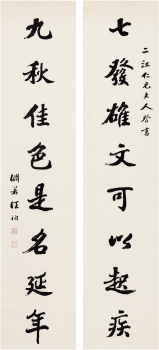 二江仁兄大人書
七發雄文可以起疾
九秋佳色是名延年
淵若汪洵